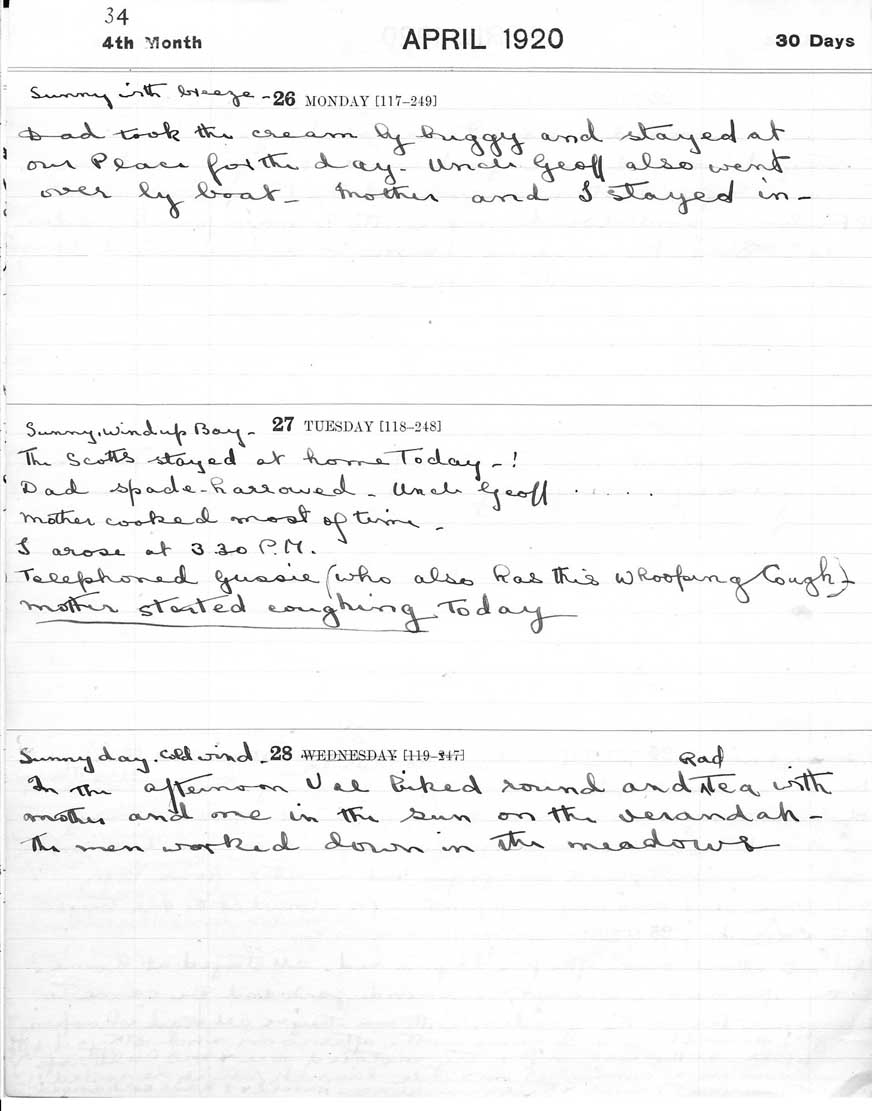 34
4th Month APRIL 1920 30 Days
Sunny with breeze - 26 MONDAY [117–249]
Dad took the cream by buggy and stayed at
our Place for the day. Uncle Geoff also went
over by boat - Mother and I stayed in -
Sunny, wind up Bay - 27 TUESDAY [118–248]
The Scotts stayed at home Today - !
Dad spade-harrowed - Uncle Geoff . . . . .
Mother cooked most of time -
I arose at 3 30 P.M.
Telephoned Gussie (who also has this Whooping Cough) -
Mother started coughing Today
Sunny day. Cold wind - 28 WEDNESDAY [119–247]
had
In the afternoon Val biked round and Tea with
mother and me in the sun on the verandah -
The men worked down in the meadows